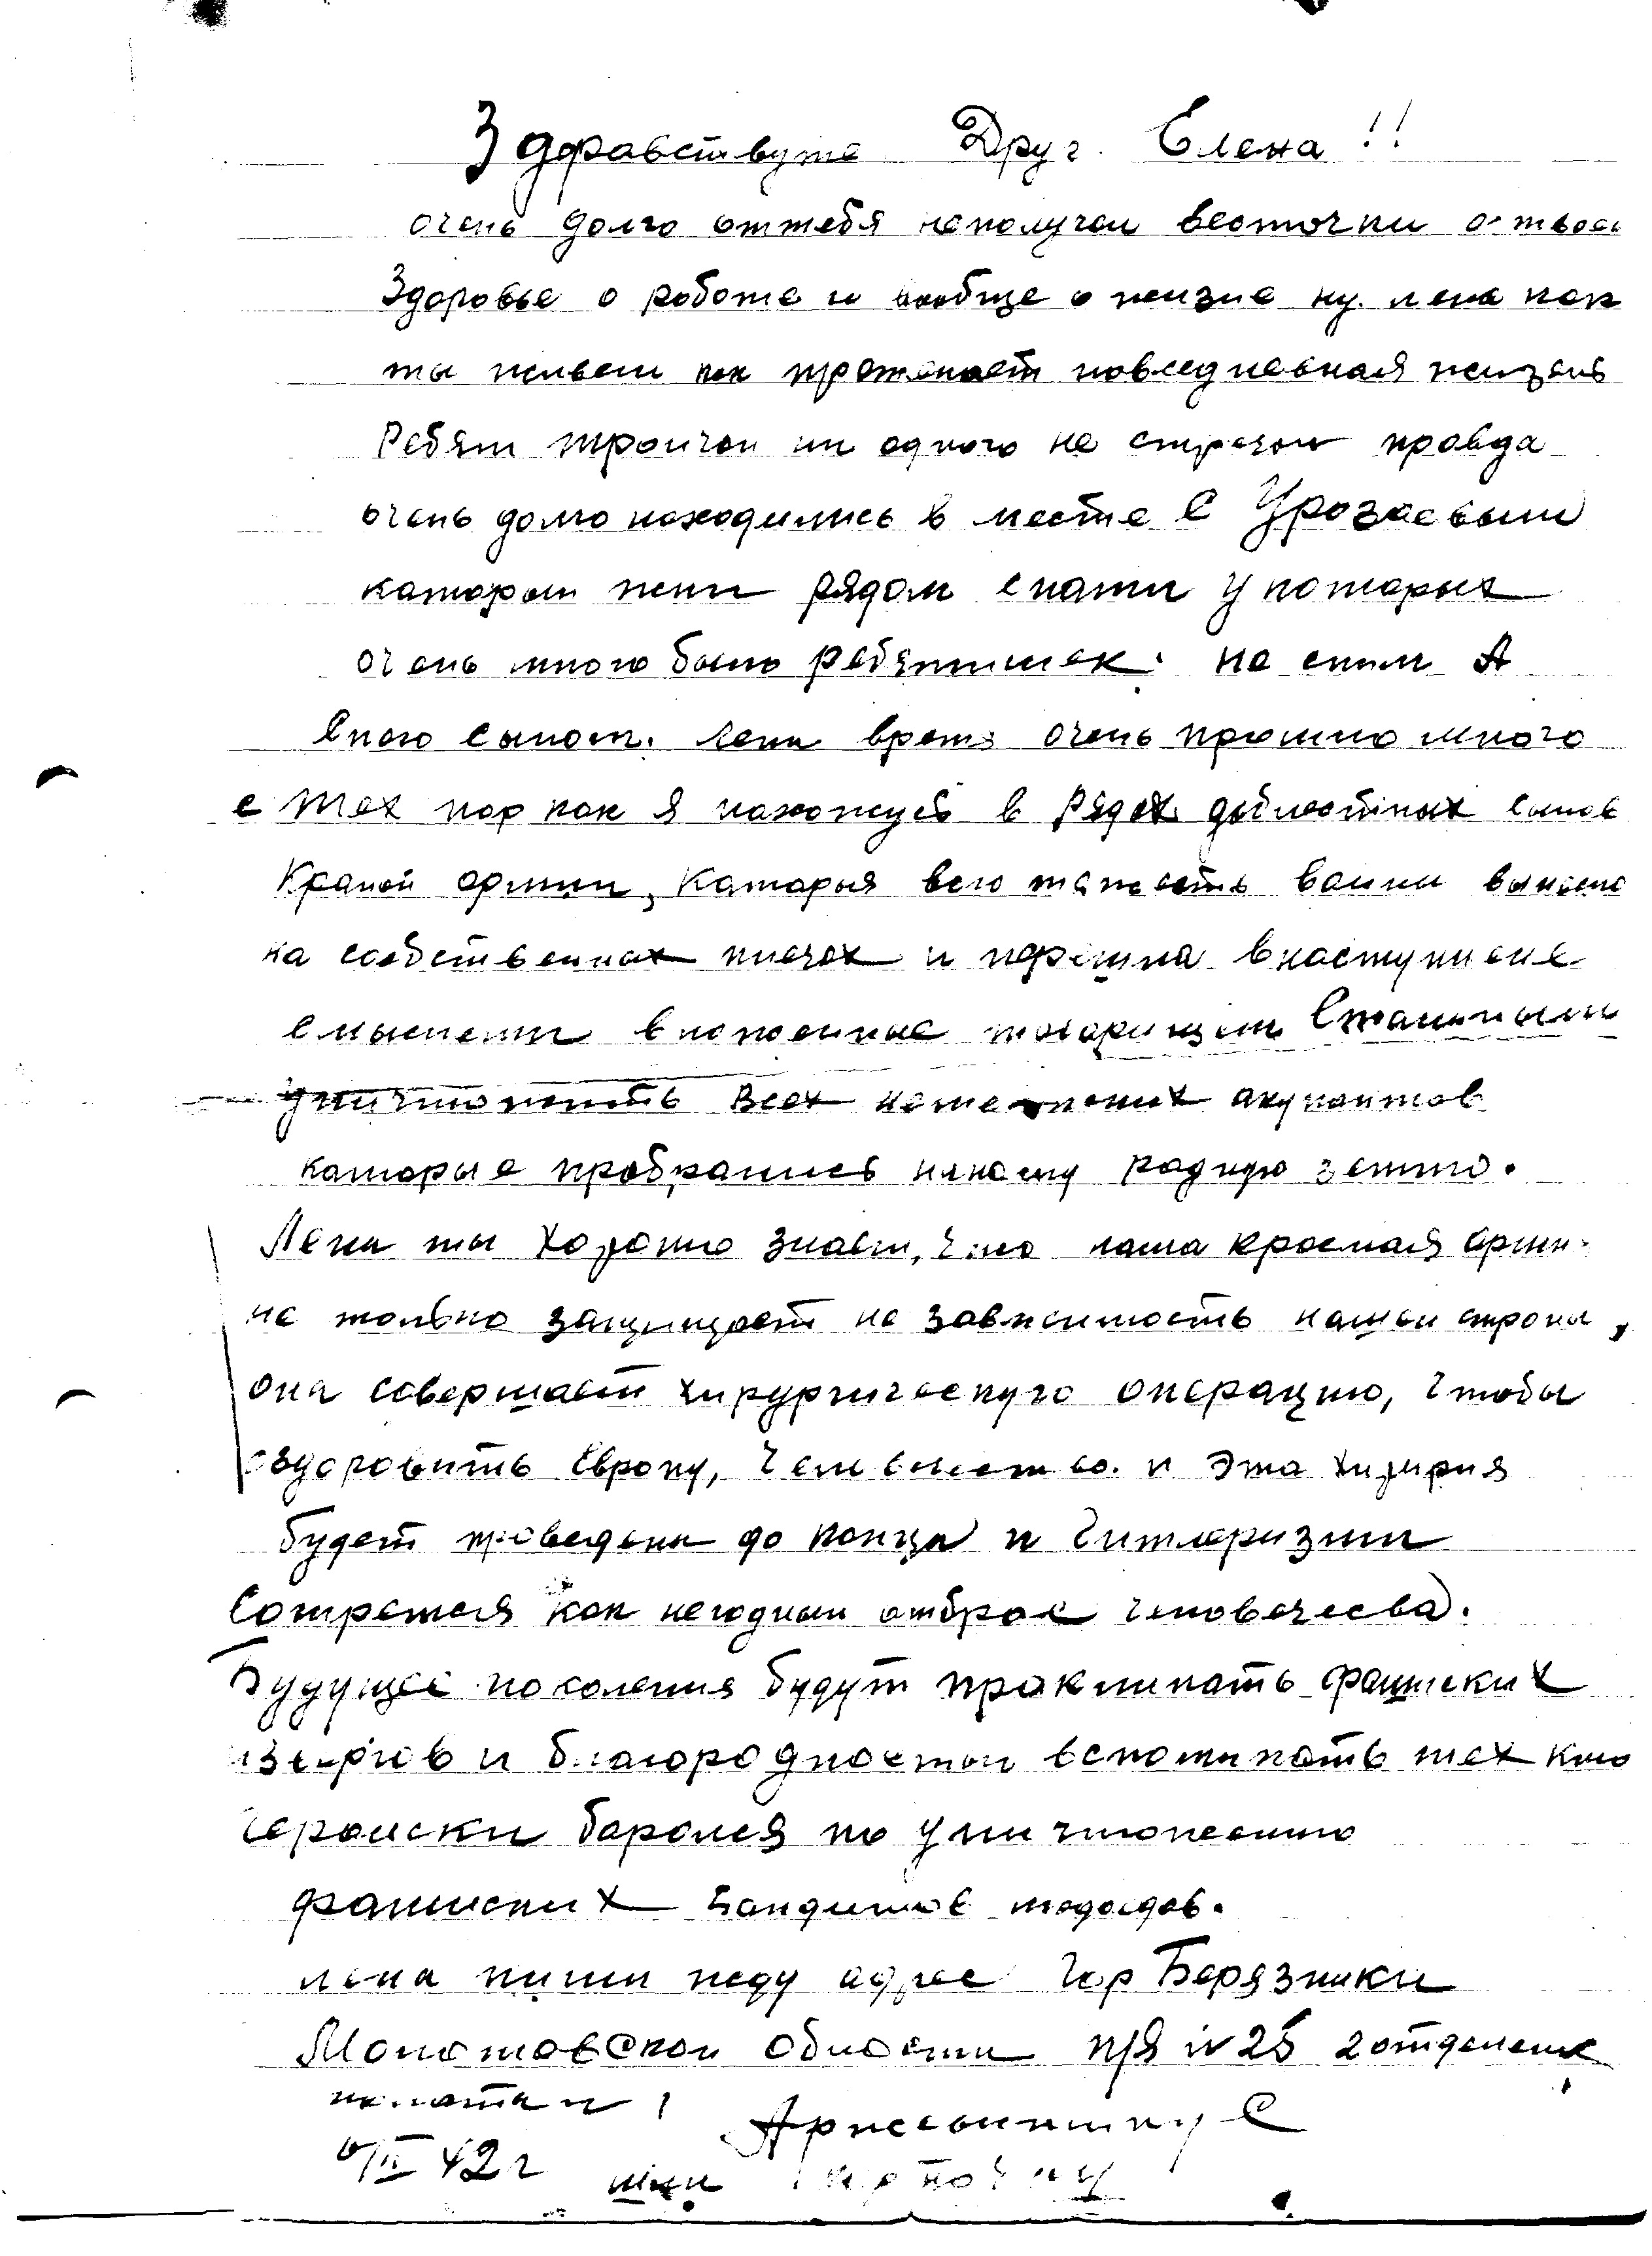 Здравствуте Друг Елена!!
очень долго оттебя неполучал весточки о твоем
Здоровье о роботе и вообще о жизне ну. лена как
ты живеш как протекает повседневная жизень
Ребят ни одного не стречал правда
очень долго находились в месте с Урозаевым
каторыи жил рядом с нами у которых
очень много было ребятишек. не с ним А
с ного сыном. Лена время очень прошло много
с тех пор как я нахожусь в рядах доблестных сынов
Краной армии, Каторыя всю тажесть воины вынесла
на собственнах плечах и перешла внаступление
с мыслеми товарищем Сталиным
уничтожить Всех немецких акупантов
каторые пробрались нанашу радную землю.
Лена ты хорошо знаеш, Что наша красная арми
не только защищает не зависимость нашеи страны,
она совершает хирургическую операцию, Чтобы
оздоровить Европу, и эта
будет проведена до конца и Гитлеризим
Сотрется как негодныи отброс человечесва.
Будущее поколения будут проклинать фашиских
извергов и благородностью вспоминать тех кто
героиски боролся по уничтожению
фашиских бандитов людоедов.
лена пиши адрес Гор Берязники
Молотовскои области п/я №25 2 отделение
палата
6/II 42г